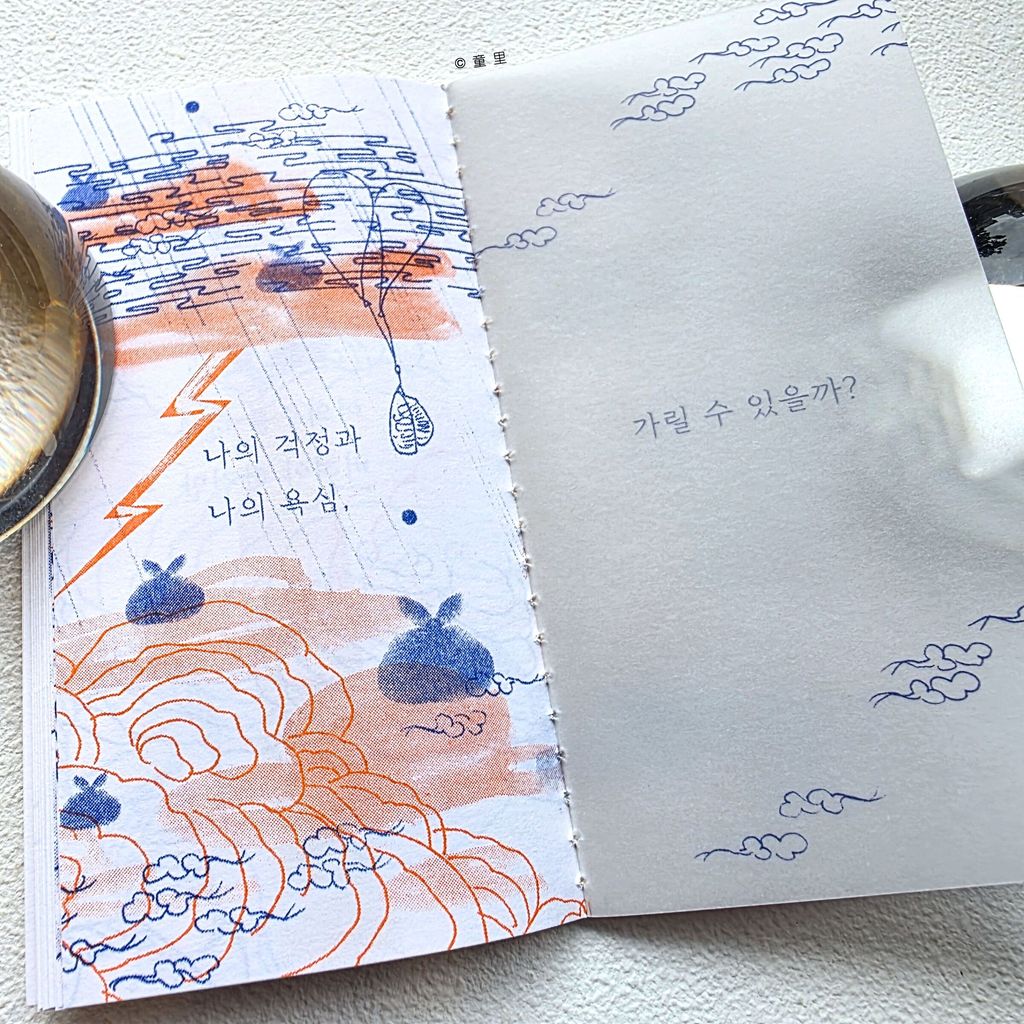 © 童里
나의 걱정과
나의 욕심,
가릴 수 있을까?